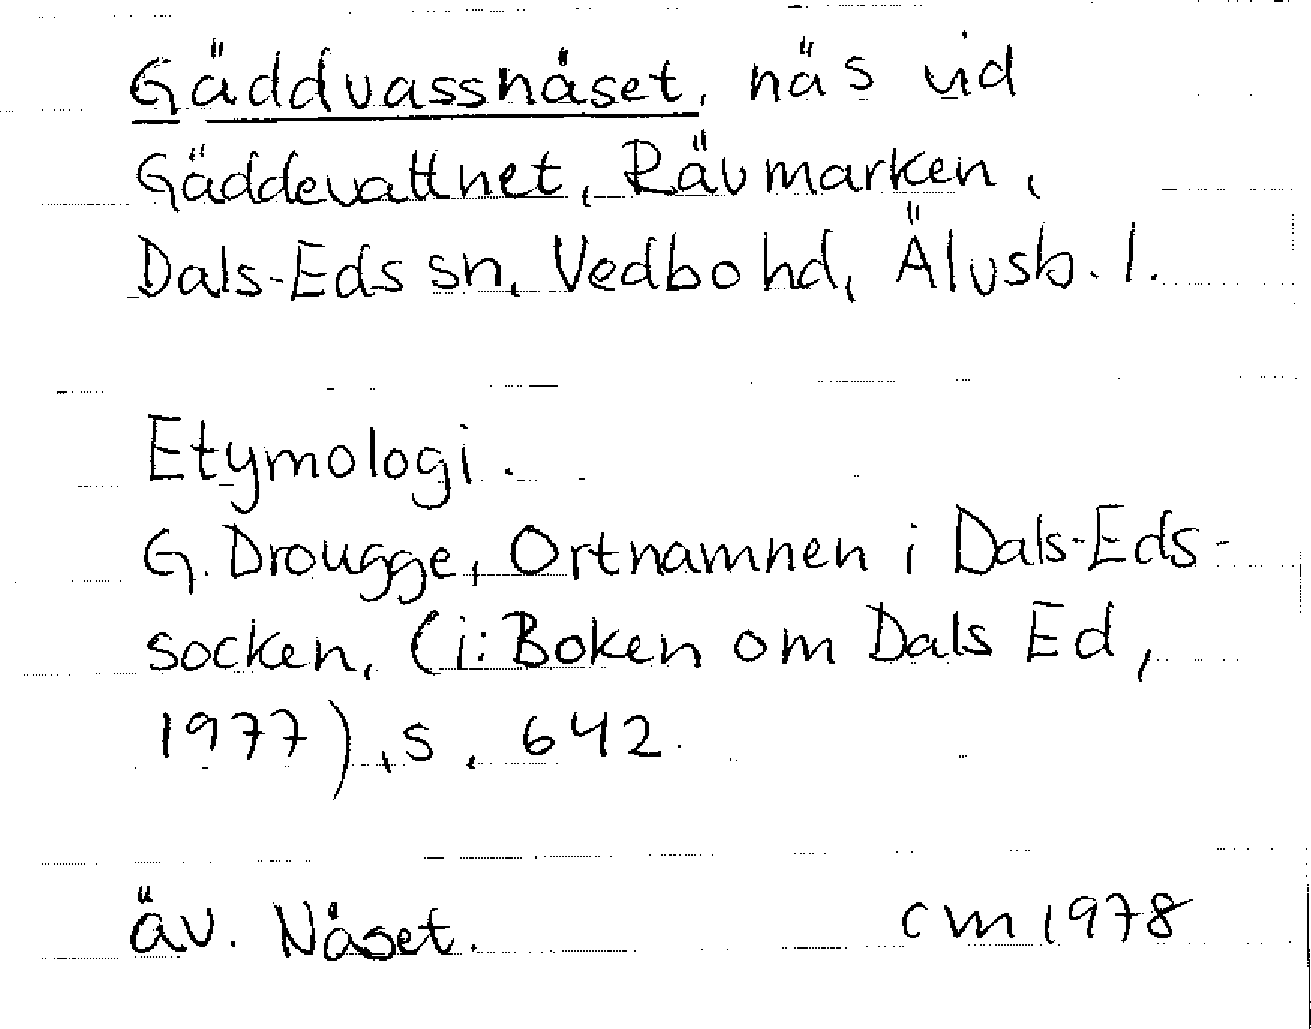 Gäddvassnåset, näs vid
Gäddevattnet, Rävmarken,
Dals-Eds sn, Vedbo hd, Älvsb. l.
Etymologi.
G. Drougge, Ortnamnen i Dals-Eds-
socken, (i: Boken om Dals Ed,
1977), s. 642.
äv. Nåset. cm 1978